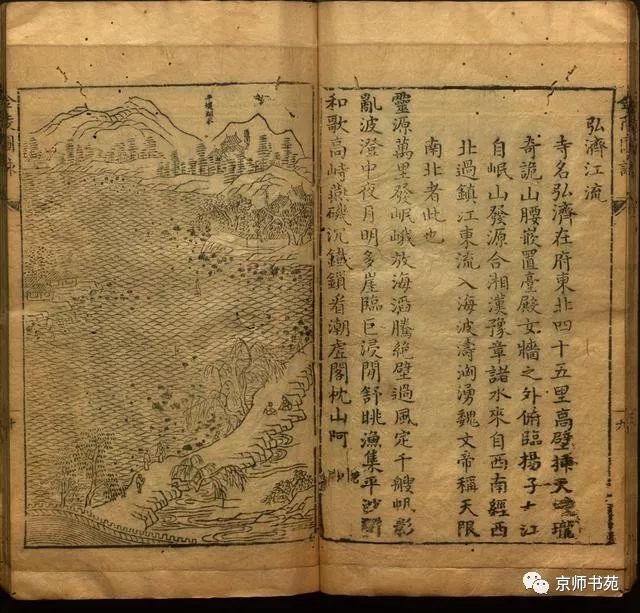 金陵圖詠
九
弘濟江流
寺名弘濟在府東北四十五里高壁插天瓏
奇詭山腰嵌置臺殿女牆之外俯臨揚子江
自岷山發源合湘漢豫章諸水來自西南經西
北過鎮江東流入海波濤洶湧魏文帝稱天限
南北者此也
靈源萬里發岷峨放海滔騰絕壁過風定千艘帆影
亂波澄中夜月明多崖臨巨浸閒舒眺漁集平沙
和歌高峙燕磯沉鐵鎖看潮虛閣枕山阿
金陵圖詠
十
京师书苑